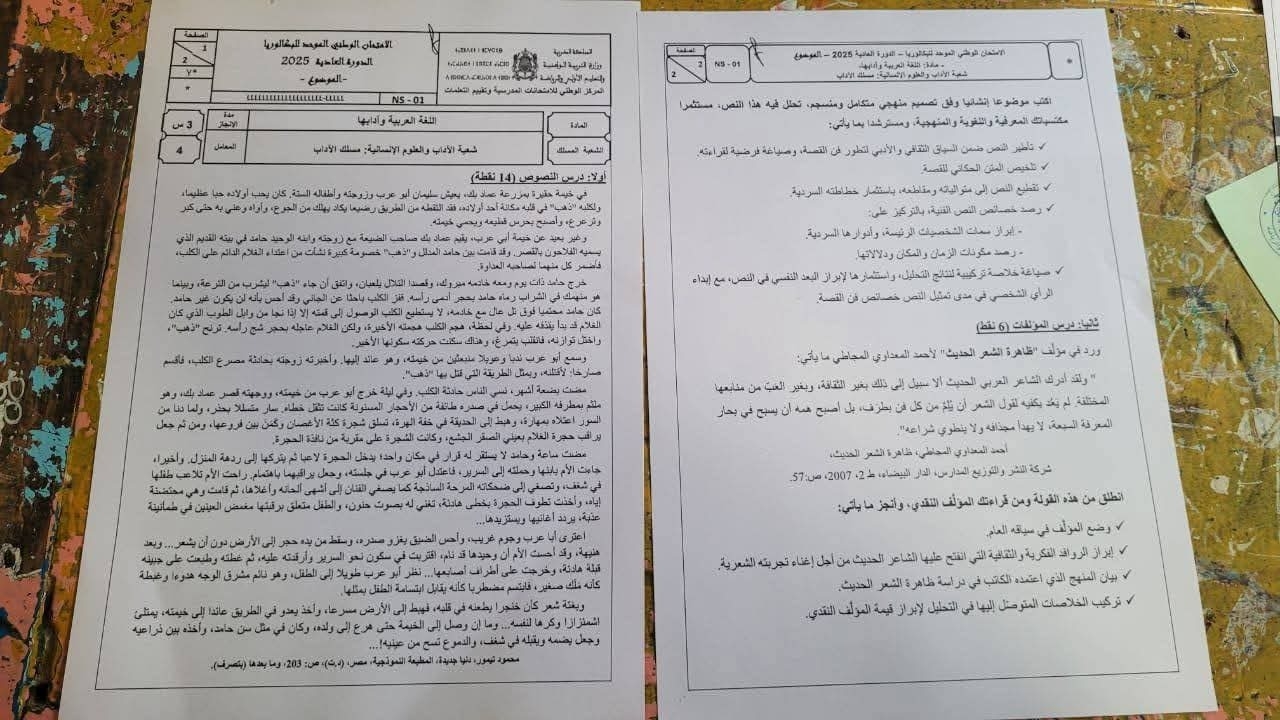 الصفحة
1
2
*٧
*
الامتحان الوطني الموحد للبكالوريا
الدورة العادية 2025
- الموضوع -
NS - 01
المملكة المغربية
وزارة التربية الوطنية
والتعليم الأولي والرياضة
المركز الوطني للامتحانات المدرسية وتقييم التعلمات
3 س
مدة الإنجاز
اللغة العربية وآدابها
المادة
4
المعامل
شعبة الآداب والعلوم الإنسانية: مسلك الآداب
الشعبة المسلك
أولا: درس النصوص (14 نقطة)
في خيمة حقيرة بمزرعة عماد بك، يعيش سليمان أبو عرب وزوجته وأطفاله الستة. كان يحب أولاده حبا عظيما،
ولكلبه "ذهب" في قلبه مكانة أحد أولاده، فقد التقطه من الطريق رضيعا يكاد يهلك من الجوع، وآواه وعني به حتى كبر
وترعرع، وأصبح يحرس قطيعه ويحمي خيمته.
وغير بعيد عن خيمة أبي عرب، يقيم عماد بك صاحب الضيعة مع زوجته وابنه الوحيد حامد في بيته القديم الذي
يسميه الفلاحون بالقصر. وقد قامت بين حامد المدلل و"ذهب" خصومة كبيرة نشأت من اعتداء الغلام الدائم على الكلب،
فأضمر كل منهما لصاحبه العداوة.
خرج حامد ذات يوم ومعه خادمه مبروك، وقصدا التلال يلعبان، واتفق أن جاء "ذهب" ليشرب من الترعة، وبينما
هو منهمك في الشراب رماه حامد بحجر أدمى رأسه. فقز الكلب باحثا عن الجاني وقد أحس بأنه لن يكون غير حامد.
كان حامد محتميا فوق تل عال مع خادمه، لا يستطيع الكلب الوصول إلى قمته إلا إذا نجا من وابل الطوب الذي كان
الغلام قد بدأ يقذفه عليه. وفي لحظة، هجم الكلب هجمته الأخيرة، ولكن الغلام عاجله بحجر شج رأسه. ترنح "ذهب"،
واختل توازنه، فانقلب يتمرغ، وهناك سكنت حركته سكونها الأخير.
وسمع أبو عرب ندبا وعويلا منبعثين من خيمته، وهو عائد إليها. وأخبرته زوجته بحادثة مصرع الكلب، فأقسم
صارخا: لأقتلنه، وبمثل الطريقة التي قتل بها "ذهب".
مضت بضعة أشهر، نسي الناس حادثة الكلب. وفي ليلة خرج أبو عرب من خيمته، ووجهته قصر عماد بك، وهو
ملثم بمطرفه الكبير، يحمل في صدره طائفة من الأحجار المسنونة كانت تثقل خطاه. سار متسللا بحذر، ولما دنا من
السور اعتلاه بمهارة، وهبط إلى الحديقة في خفة الهرة، تسلق شجرة كثة الأغصان وكَمَنَ بين فروعها، ومن ثم جعل
يراقب حجرة الغلام بعيني الصقر الجشع، وكانت الشجرة على مقربة من نافذة الحجرة.
مضت ساعة وحامد لا يستقر له قرار في مكان واحد؛ يدخل الحجرة لاعبا ثم يتركها إلى ردهة المنزل. وأخيرا،
جاءت الأم بابنها وحملته إلى السرير، فاعتدل أبو عرب في جلسته، وجعل يراقبهما باهتمام. راحت الأم تلاعب طفلها
في شغف، وتصغي إلى ضحكاته المرحة الساذجة كما يصغي الفنان إلى أشهى ألحانه وأغلاها، ثم قامت وهي محتضنة
إياه، وأخذت تطوف الحجرة بخطى هادئة، تغني له بصوت حنون، والطفل متعلق برقبتها مغمض العينين في طمأنينة
عذبة، يردد أغانيها ويستزيدها...
اعترى أبا عرب وجوم غريب، وأحس الضيق يغزو صدره، وسقط من يده حجر إلى الأرض دون أن يشعر... وبعد
هنيهة، وقد أحست الأم أن وحيدها قد نام، اقتربت في سكون نحو السرير وأرقدته عليه، ثم غطته وطبعت على جبينه
قبلة هادئة، وخرجت على أطراف أصابعها... نظر أبو عرب طويلا إلى الطفل، وهو نائم مشرق الوجه هدوءا وغبطة
كأنه مَلَك صغير، فابتسم مضطربا كأنه يقابل ابتسامة الطفل بمثلها.
وبغتة شعر كأن خنجرا يطعنه في قلبه، فهبط إلى الأرض مسرعا، وأخذ يعدو في الطريق عائدا إلى خيمته، يمتلئ
اشمئزازا وكرها لنفسه... وما إن وصل إلى الخيمة حتى هرع إلى ولده، وكان في مثل سن حامد، وأخذه بين ذراعيه
وجعل يضمه ويقبله في شغف، والدموع تسح من عينيه!...
محمود تيمور، دنيا جديدة، المطبعة النموذجية، مصر، (د.ت)، ص: 203، وما بعدها (بتصرف).
الصفحة
2
2
NS - 01
الامتحان الوطني الموحد للبكالوريا – الدورة العادية 2025 – الموضوع
- مادة: اللغة العربية وآدابها-
شعبة الآداب والعلوم الإنسانية: مسلك الآداب
*
اكتب موضوعا إنشائيا وفق تصميم منهجي متكامل ومنسجم، تحلل فيه هذا النص، مستثمرا
مكتسباتك المعرفية واللغوية والمنهجية، ومسترشدا بما يأتي:
✓ تأطير النص ضمن السياق الثقافي والأدبي لتطور فن القصة، وصياغة فرضية لقراءته.
✓ تلخيص المتن الحكائي للقصة.
✓ تقطيع النص إلى متوالياته ومقاطعه، باستثمار خطاطته السردية.
✓ رصد خصائص النص الفنية، بالتركيز على:
- إبراز سمات الشخصيات الرئيسة، وأدوارها السردية.
- رصد مكونات الزمان والمكان ودلالاتها.
✓ صياغة خلاصة تركيبية لنتائج التحليل، واستثمارها لإبراز البعد النفسي في النص، مع إبداء
الرأي الشخصي في مدى تمثيل النص خصائص فن القصة.
ثانيا: درس المؤلفات (6 نقط)
ورد في مؤلَّف "ظاهرة الشعر الحديث" لأحمد المعداوي المجاطي ما يأتي:
" ولقد أدرك الشاعر العربي الحديث ألا سبيل إلى ذلك بغير الثقافة، وبغير العبّ من منابعها
المختلفة. لم يَعُد يكفيه لقول الشعر أن يُلِمَّ من كل فن بطرَف، بل أصبح همه أن يسبح في بحار
المعرفة السبعة، لا يهدأ مجذافه ولا ينطوي شراعه".
أحمد المعداوي المجاطي، ظاهرة الشعر الحديث،
شركة النشر والتوزيع المدارس، الدار البيضاء، ط 2، 2007، ص:57.
انطلق من هذه القولة ومن قراءتك المؤلَّف النقدي، وأنجز ما يأتي:
✓ وضع المؤلَّف في سياقه العام.
✓ إبراز الروافد الفكرية والثقافية التي انفتح عليها الشاعر الحديث من أجل إغناء تجربته الشعرية.
✓ بيان المنهج الذي اعتمده الكاتب في دراسة ظاهرة الشعر الحديث.
✓ تركيب الخلاصات المتوصل إليها في التحليل لإبراز قيمة المؤلَّف النقدي.